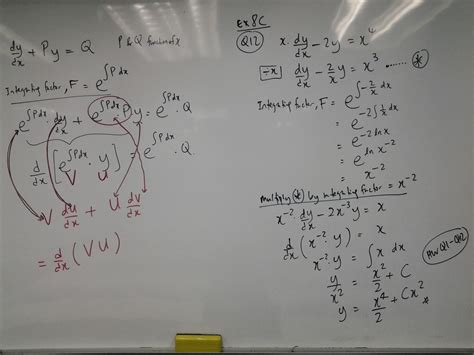 dy/dx + Py = Q     P & Q function of x
Integrating factor, F = e^∫P dx
e^∫Pdx · dy/dx + e^∫Pdx · Py = e^∫Pdx · Q
d/dx [e^∫Pdx · y] = e^∫Pdx · Q
V U
V du/dx + U dv/dx
= d/dx (VU)
Ex 8C
Q12 x · dy/dx − 2y = x⁴
÷x dy/dx − 2/x y = x³ ...... *
Integrating factor, F = e^∫−2/x dx
= e^−2∫1/x dx
= e^−2 ln x
= e^ln x⁻²
= x⁻²
Multiply (*) by integrating factor = x⁻²
x⁻² · dy/dx − 2x⁻³y = x
d/dx (x⁻² · y) = x
x⁻² · y = ∫ x dx
y/x² = x²/2 + C
y = x⁴/2 + Cx²
HW Q1–Q12